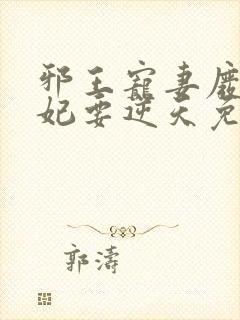 邪王寵妻廢
妃要逆天免
郭濤